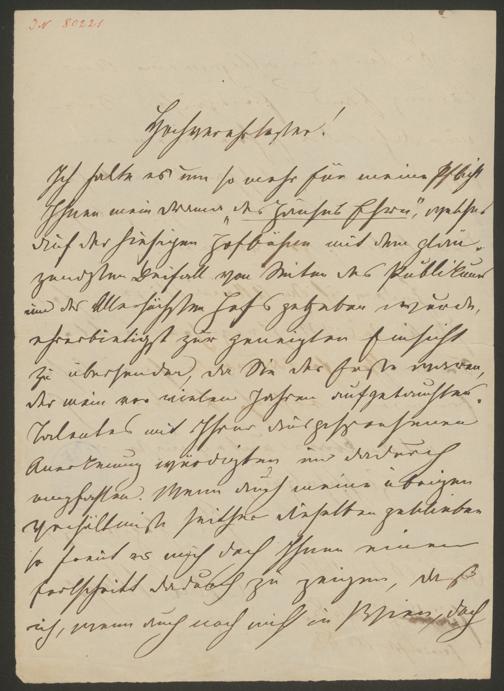 IN 80221
Hochverehrtester!
Ich halte es um so mehr für meine Pflicht
Ihnen mein Drama "des Hauses Ehre", welches
auf der hiesigen Hofbühne mit dem glän-
zendsten Beifall von Seiten des Publikums
und des Allerhöchsten Hofs gegeben wurde,
ehrerbietigst zur geneigten Einsicht
zu übersenden, da Sie der Erste waren,
der mein vor vielen Jahren aufgetauchtes
Talentes mit Ihrer ausgesprochenen
Anerkennung würdigten und dadurch
empfahlen. Wenn auch meine übrigen
Verhältnisse seither dieselben geblieben
so freut es mich doch Ihnen einen
Fortschritt dadurch zu zeigen, daß
ich, wenn auch noch nicht in Wien, doch